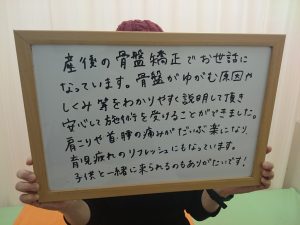 産後の骨盤矯正でお世話に
なっています。骨盤がゆがむ原因や
しくみ等をわかりやすく説明して頂き
安心して施術を受けることができました。
肩こりや首・腰の痛みがだいぶ楽になり、
育児疲れのリフレッシュにもなっています。
子供と一緒に来られるのもありがたいです!